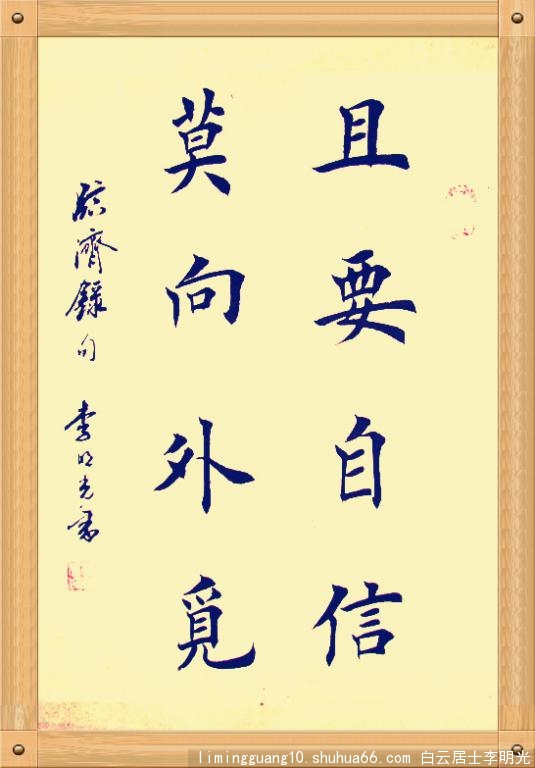 且要自信
莫向外觅
临济录句 李明光书
limingguang10.shuhua66.com 白云居士李明光